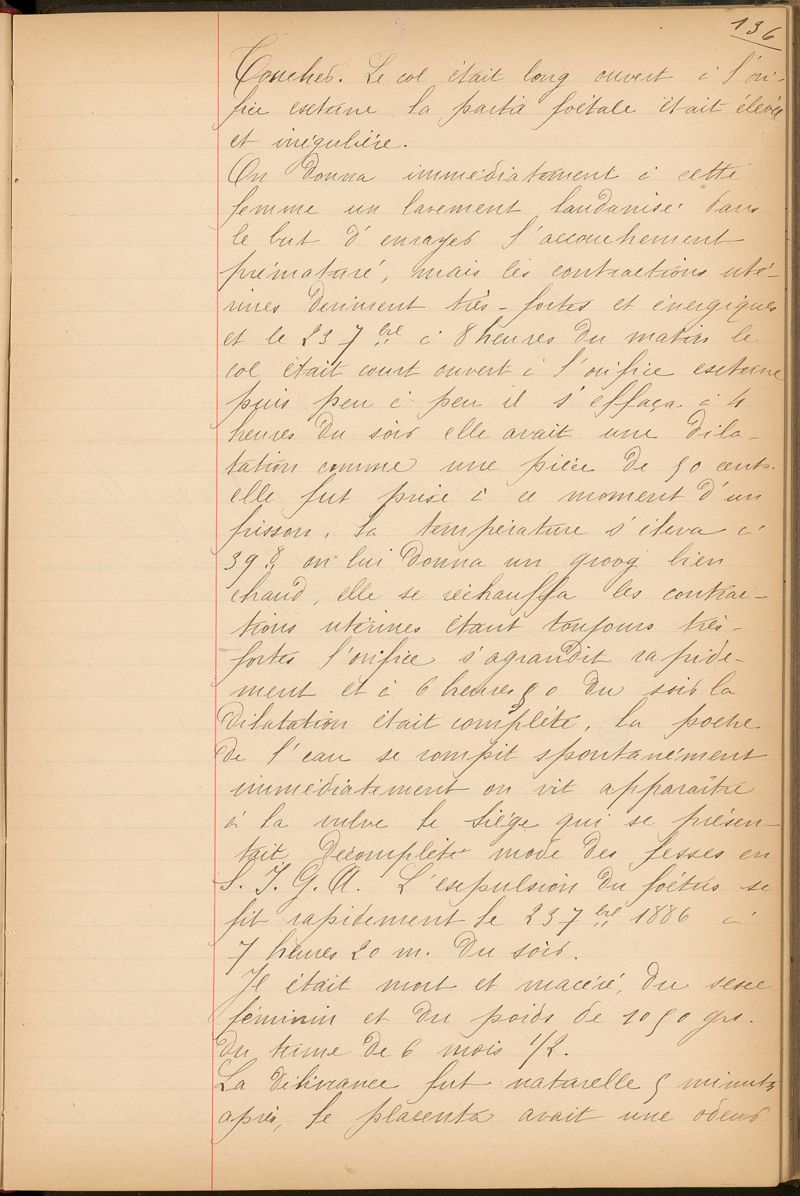 136
Couches. Le col était long ouvert à l'ori-
fice externe la partie foétale était élevée
et irrégulière.
On donna immédiatement à cette
femme un lavement laudanisé dans
le but d'enrayer l'accouchement
prématuré, mais les contractions uté-
rines devinrent très-fortes et énergiques
et le 23 7bre à 8 heures du matin le
col était court ouvert à l'orifice externe
puis peu à peu il s'effaça à 4
heures du soir elle avait une dila-
tation comme une pièce de 50 cent.
elle fut prise à ce moment d'un
frisson, la température s'éleva à
39.8 on lui donna un groog bien
chaud, elle se réchauffa les contrac-
tions utérines étant toujours très-
fortes l'orifice s'agrandit rapide-
ment et à 6 heures 50 du soir la
Dilatation était complète, la poche
de l'eau se rompit spontanément
immédiatement on vit apparaître
à la vulve le siège qui se présen-
tait décomplété mode des fesses en
S. I. G. A. L'expulsion du foétus se
fit rapidement le 23 7bre 1886 à
7 heures 20 m. du soir.
Il était mort et macéré, du sexe
féminin et du poids de 1050 grs.
du terme de 6 mois 1/2.
La délivrance fut naturelle 5 minutes
après, le placenta avait une odeur